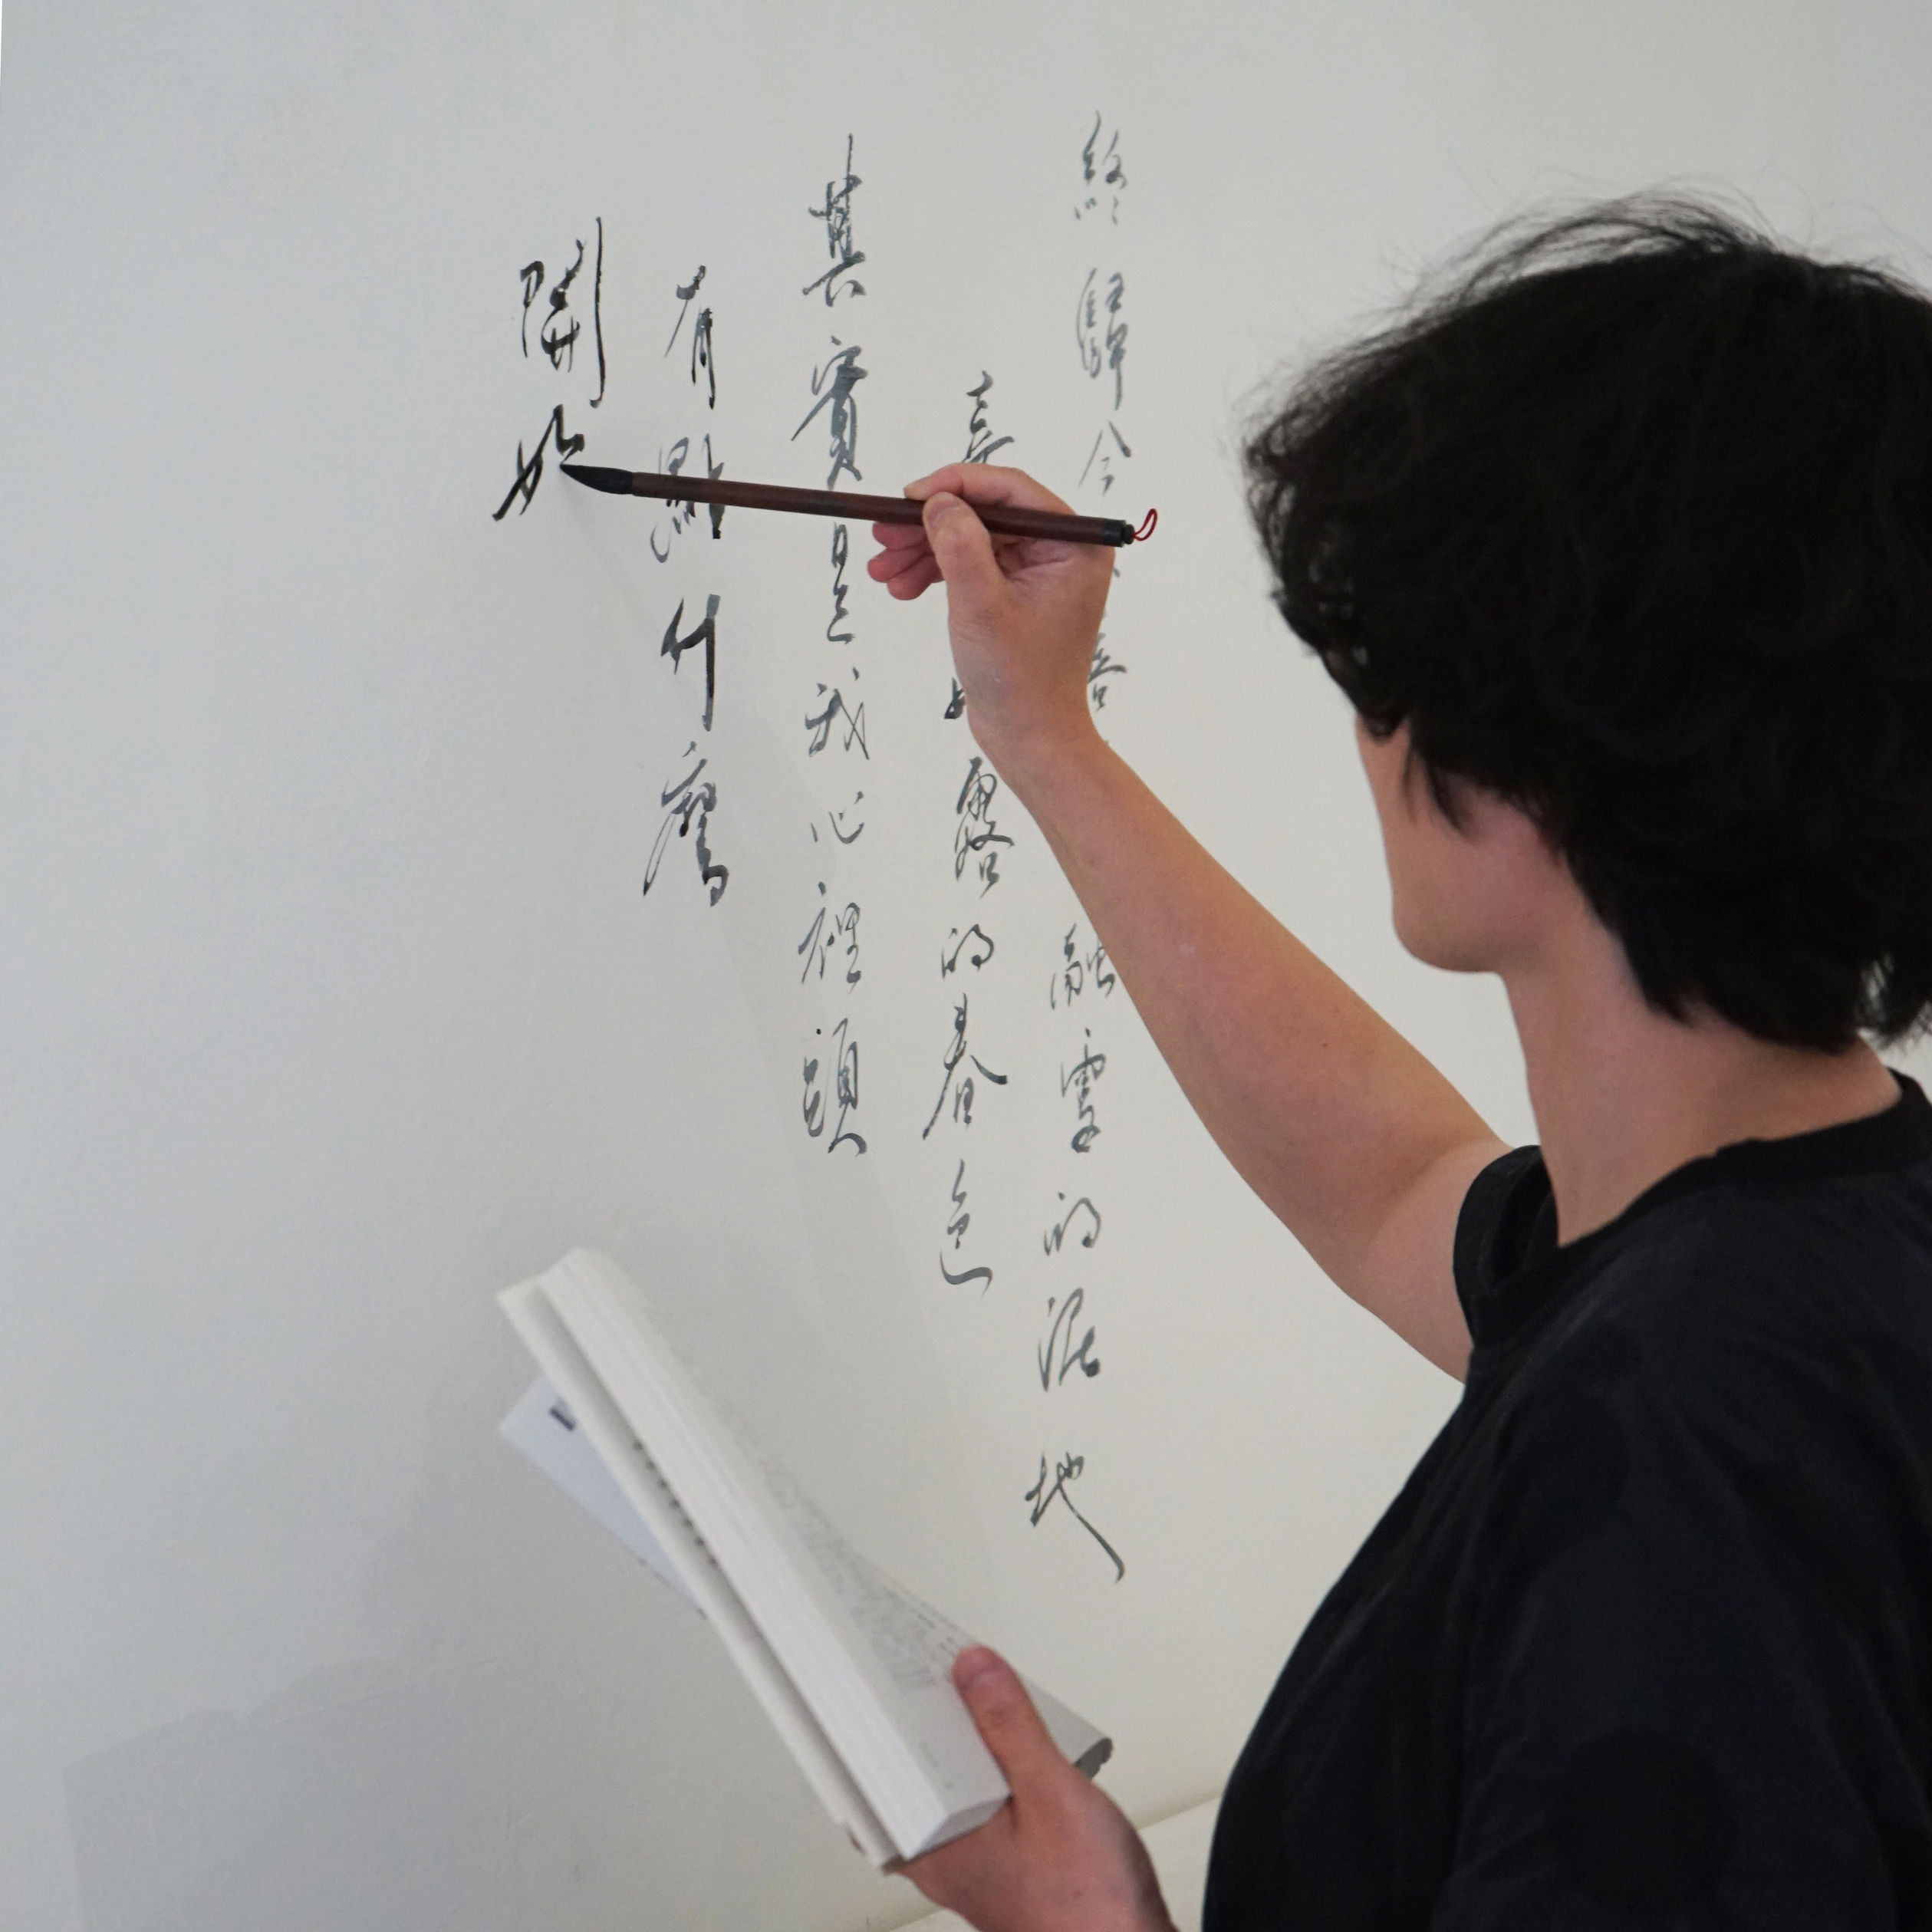 終歸 融雪的泥地
露的春色
其實是我心裡頭
有點什麼
開始